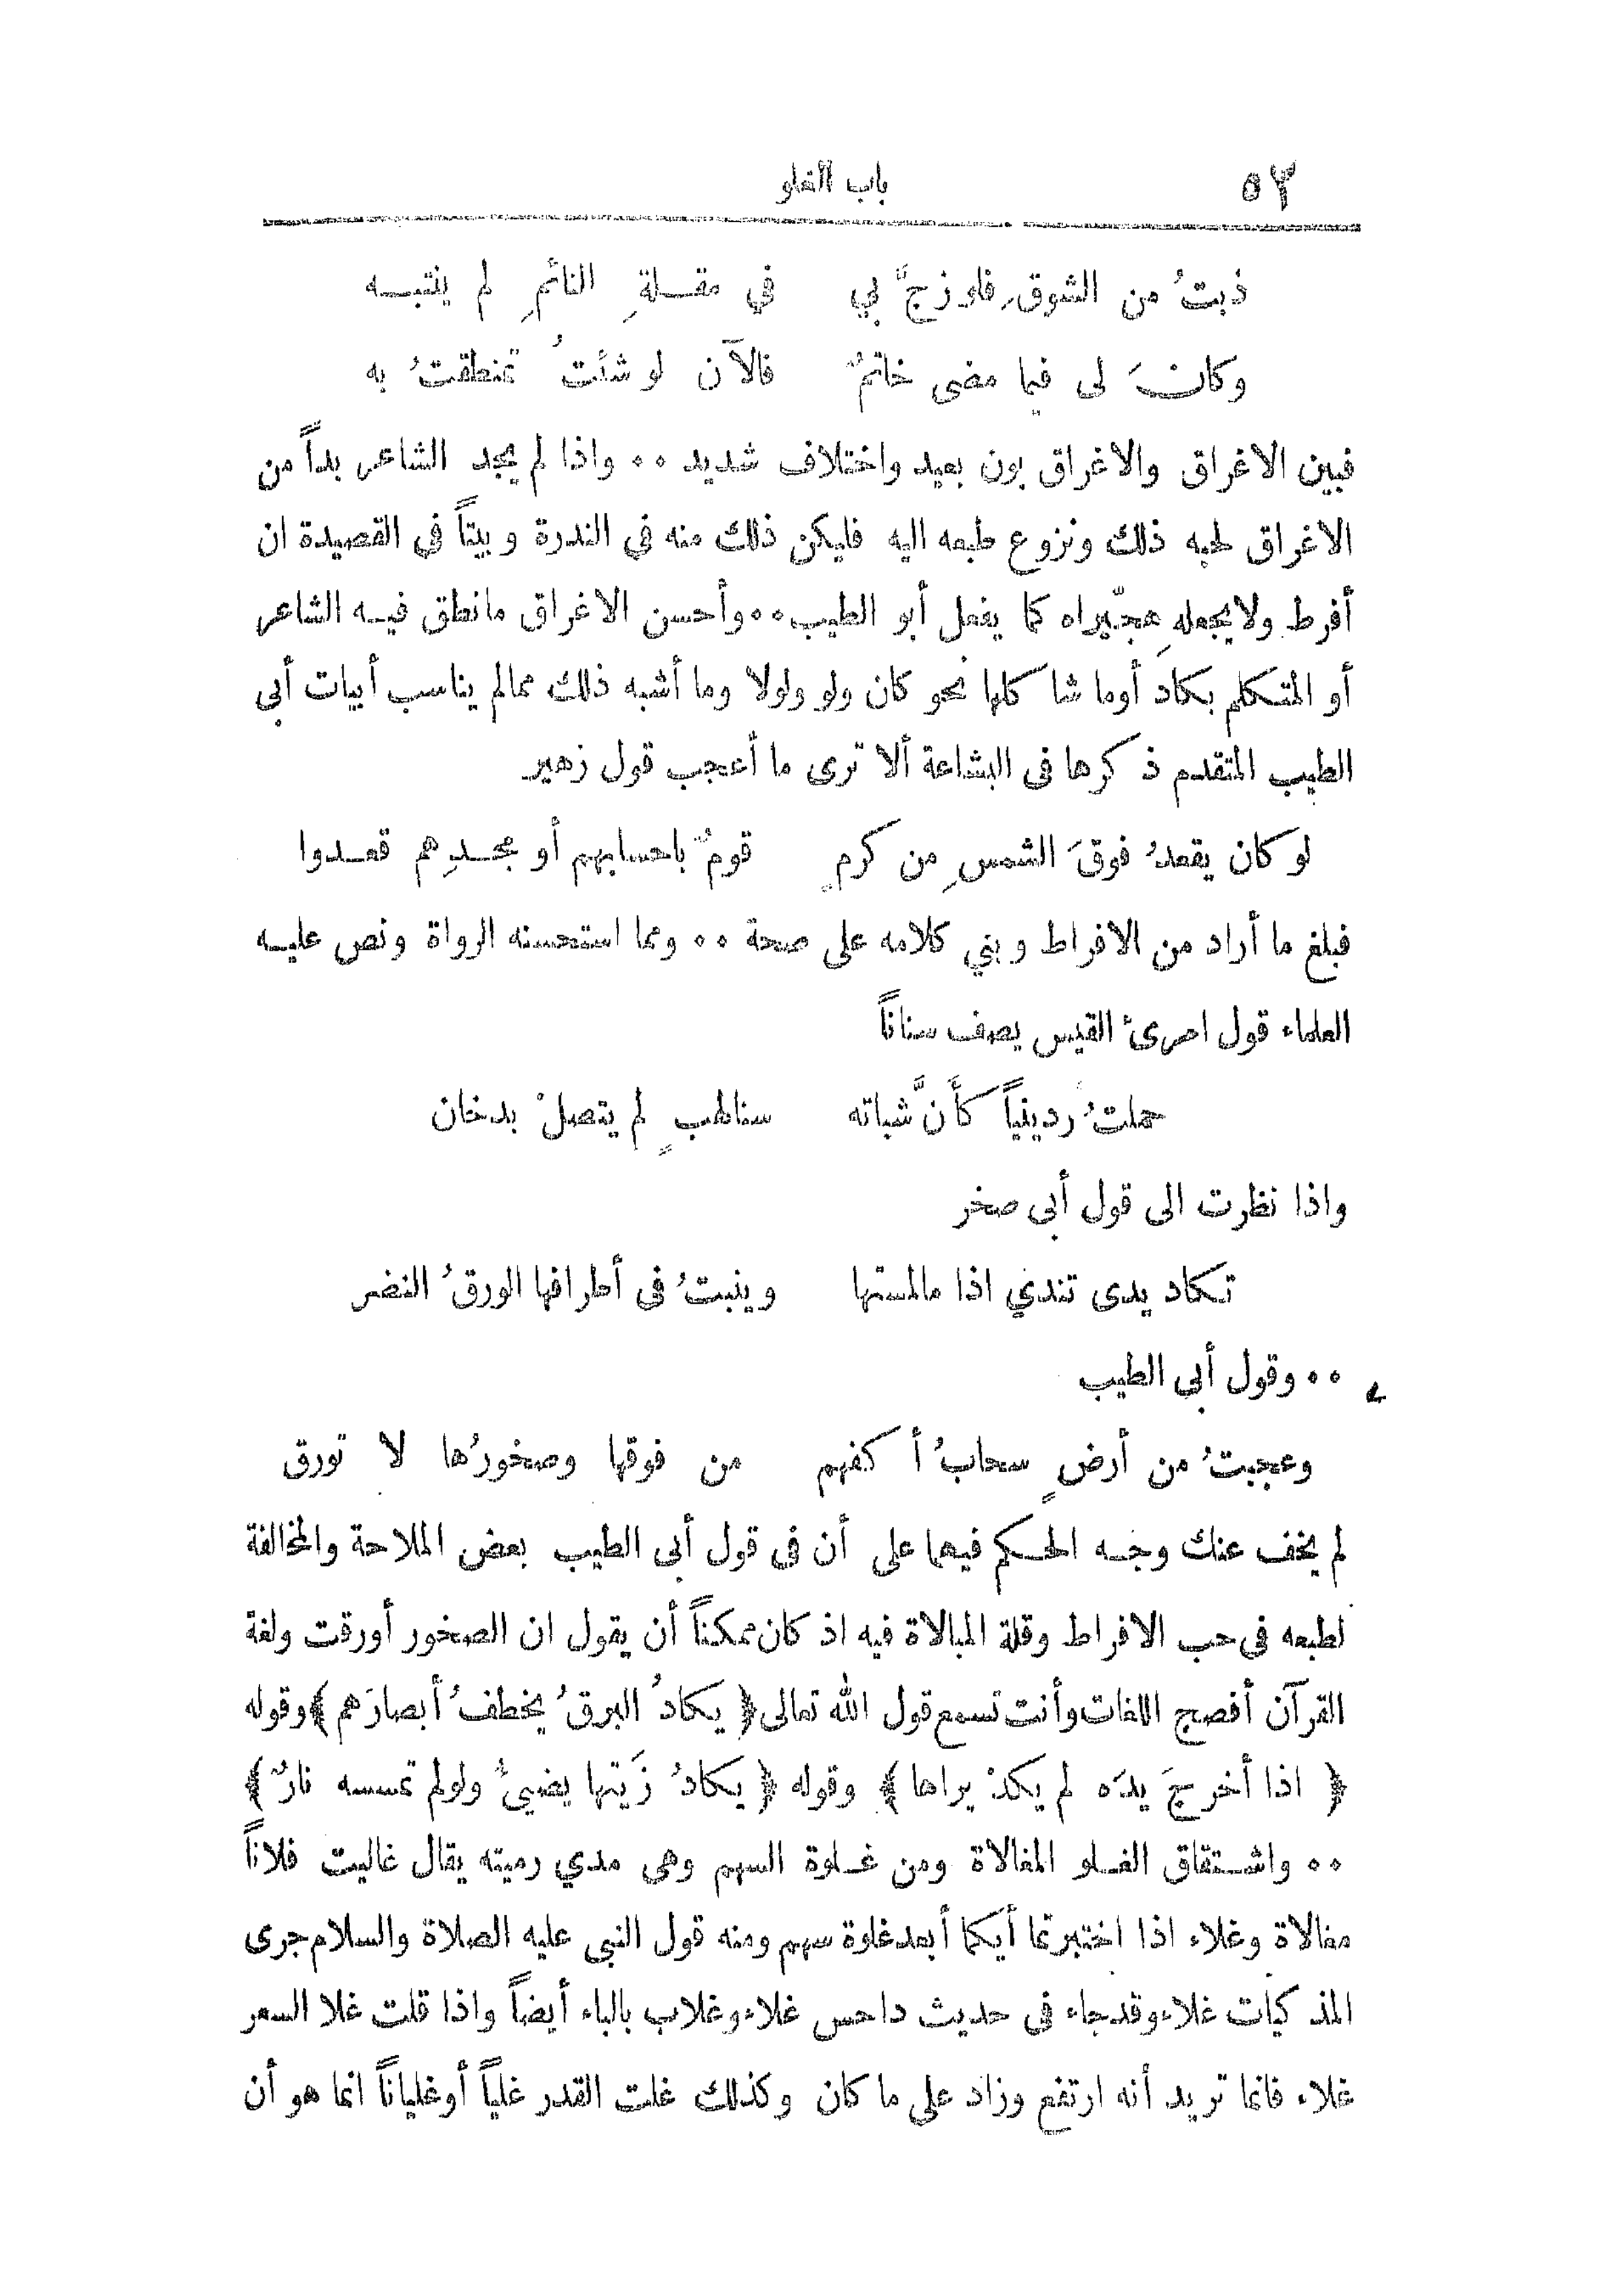 ٥٣ باب الغلو
ذبتُ من الشوقِ فلو زجَّ بي في مقلةِ النائمِ لم ينتبه
وكانَ لى فيما مضى خاتمٌ فالآن لو شئتُ تمنطقتُ به
فبين الاغراق والاغراق بون بعيد واختلاف شديد ٠٠ واذا لم يجد الشاعر بداً من
الاغراق لحبه ذلك ونزوع طبعه اليه فليكن ذلك منه في الندرة وبيتاً في القصيدة ان
أفرط ولايجعله هِجّيراه كما يفعل أبو الطيب ٠٠ وأحسن الاغراق مانطق فيه الشاعر
أو المتكلم بكادَ أوما شا كلها نحو كان ولو ولولا وما أشبه ذلك ممالم يناسب أبيات أبي
الطيب المتقدم ذ كرها فى البشاعة ألا ترى ما أعجب قول زهير
لو كان يقعدُ فوقَ الشمسِ من كرمٍ قومٌ باحسابهم أو مجدِهم قعدوا
فبلغ ما أراد من الافراط وبني كلامه على صحة ٠٠ ومما استحسنه الرواة ونص عليه
العلماء قول امرئ القيس يصف سناناً
حملتُ رُدينياً كأَنَّ شباته سنالهبٍ لم يتصلْ بدخان
واذا نظرت الى قول أبى صخر
تكاد يدى تندي اذا مالمستها وينبتُ فى أطرافها الورقُ النضر
٠٠ وقول أبى الطيب
وعجبتُ من أرضٍ سحابُ أ كفهم من فوقها وصخورُها لا تورق
لم يخف عنك وجه الحكم فيهما على أن فى قول أبى الطيب بعض الملاحة والمخالفة
لطبعه فى حب الافراط وقلة المبالاة فيه اذ كان ممكناً أن يقول ان الصخور أورقت ولغة
القرآن أفصح اللغات وأنت تسمع قول الله تعالى ﴿ يكادُ البرقُ يخطفُ أبصارَهم ﴾ وقوله
﴿ اذا أخرجَ يدَه لم يكدْ يراها ﴾ وقوله ﴿ يكادُ زَيتها يضيئُ ولولم تمسسه نارٌ ﴾
٠٠ واشتقاق الغلو المغالاة ومن غلوة السهم وهى مدي رميته يقال غاليت فلاناً
مغالاة وغلاء اذا اختبرتما أيكما أبعد غلوة سهم ومنه قول النبى عليه الصلاة والسلام جرى
المذ كيات غلاء وقدجاء فى حديث داحس غلاء وغلاب بالباء أيضاً واذا قلت غلا السعر
غلاء فانما تريد أنه ارتفع وزاد على ما كان وكذلك غلت القدر غلياً أوغلياناً انما هو أن